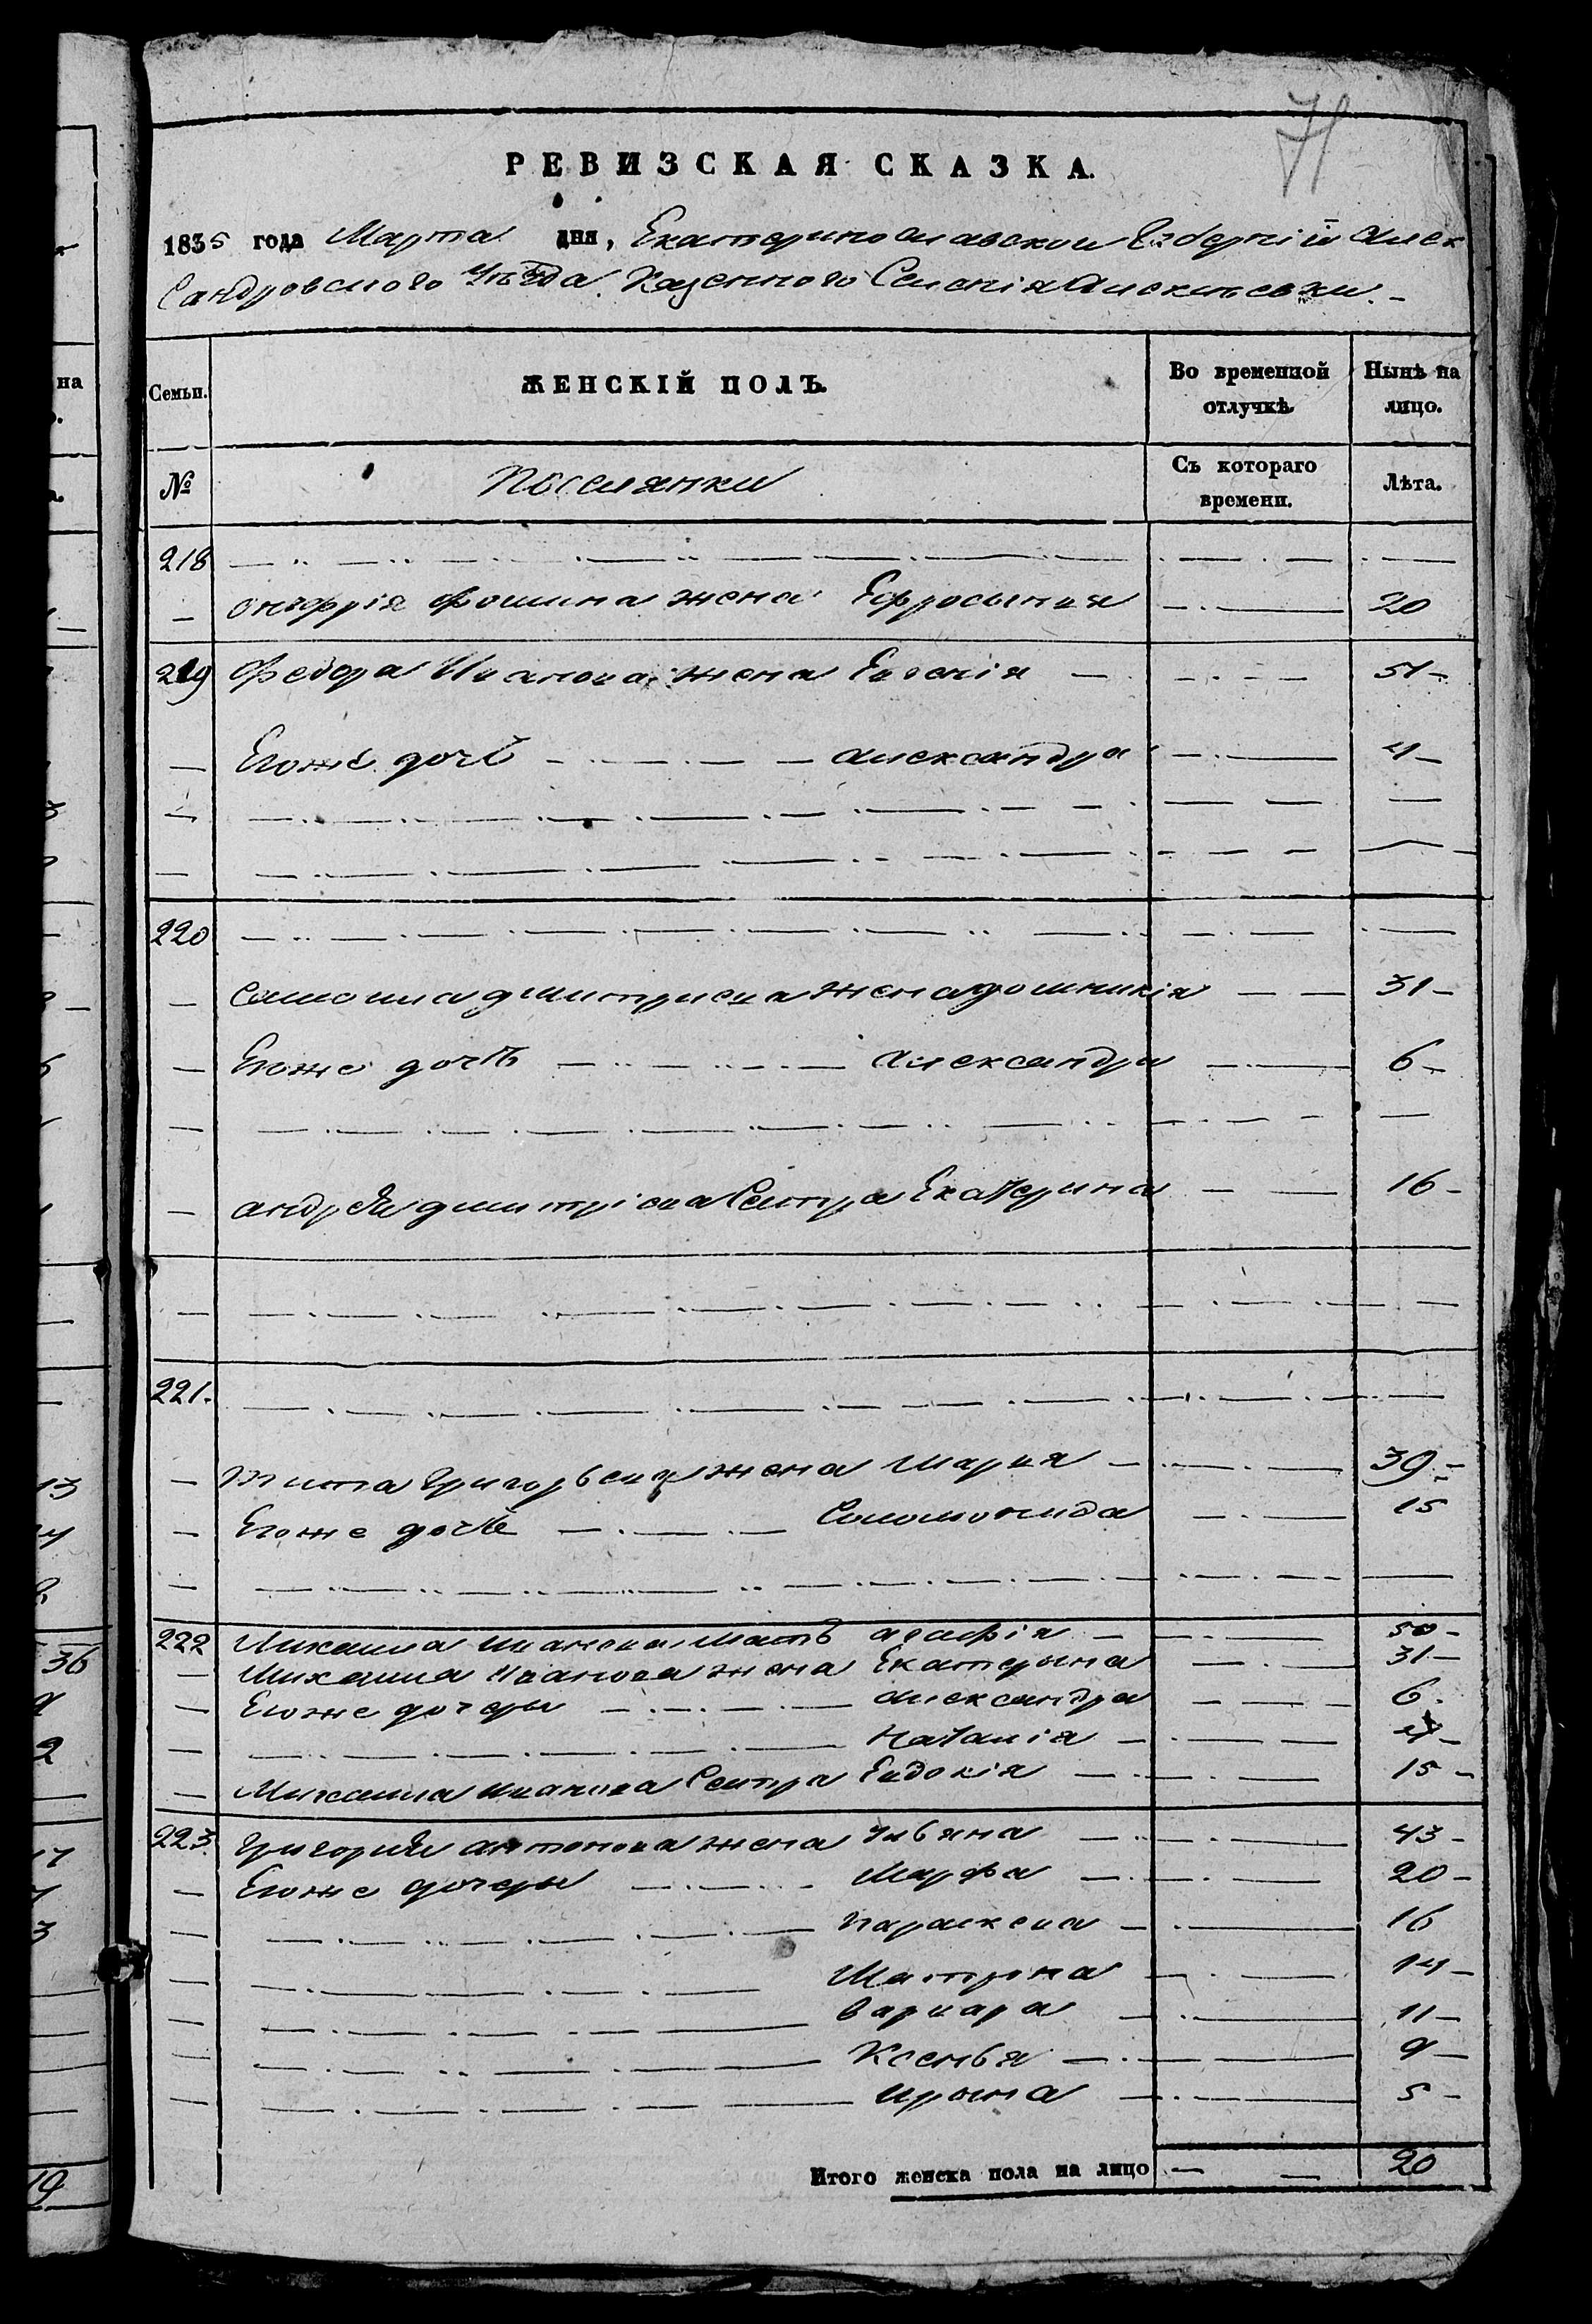 71
РЕВИЗСКАЯ СКАЗКА.
1835 года Марта дня, Екатеринославской Губерніи Алек
Сандровского Уезда, Казенного Селенія Алексеевки. -
Семьи. ЖЕНСКІЙ ПОЛЪ. Во временной отлучкѣ. Нынѣ на лицо.
№ Поселянки Съ котораго времени. Лѣта.
218
Онуфрія Фомина жена Ефросиния 20
219 Федора Иванова жена Евгенія 51
Егоже дочь Александра 4
220
Самоила дмитриева жена домникія 31
Егоже дочь Александра 6
андрея дмитріева Сестра Екатерина 16
221.
Тита Григорьева жена Мария 39
Егоже дочь Соломонида 15
222 Михаила иванова мать агафія 50
Михаила иванова жена Екатерина 31
Егоже дочери александра 6
Наталія 4
Михаила иванова Сестра Евдокія 15
223. Григория антонова жена ульяна 43
Егоже дочери Марфа 20
параскева 16
Матрона 14
варвара 11
Ксенья 9
ирина 5
Итого женска пола на лицо 20
на
13
36
2
3
19